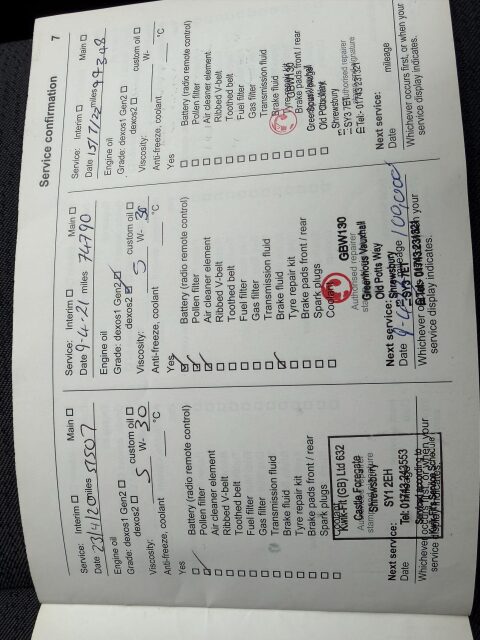 Service confirmation 7
Service: Interim Main
Date 23/4/20 miles 51507
Engine oil
Grade: dexos1 Gen2
dexos2 custom oil
Viscosity: 5 W- 30
Anti-freeze, coolant °C
Yes
Battery (radio remote control)
Pollen filter
Air cleaner element
Ribbed V-belt
Toothed belt
Fuel filter
Gas filter
Transmission fluid
Brake fluid
Tyre repair kit
Brake pads front / rear
Spark plugs
Kwik-Fit (GB) Ltd 632
Castle Foregate
Shrewsbury
SY1 2EH
Tel: 01743 243553
Next service:
Date
Whichever occurs first, or when your
Service: Interim Main
Date 9-4-21 miles 74790
Engine oil
Grade: dexos1 Gen2
dexos2 custom oil
Viscosity: 5 W- 30
Anti-freeze, coolant °C
Yes
Battery (radio remote control)
Pollen filter
Air cleaner element
Ribbed V-belt
Toothed belt
Fuel filter
Gas filter
Transmission fluid
Brake fluid
Tyre repair kit
Brake pads front / rear
Spark plugs
Coolant
GBW130
Authorised repairer
Greenhous Vauxhall
Old Potts Way
Shrewsbury
SY3 7ET
Next service:
Date mileage 109,000
Whichever occurs first, or when your
service display indicates.
Service: Interim Main
Date 15/7/22 miles 99348
Engine oil
Grade: dexos1 Gen2
dexos2 custom oil
Viscosity: W-
Anti-freeze, coolant °C
Yes
Battery (radio remote control)
Pollen filter
Air cleaner element
Ribbed V-belt
Toothed belt
Fuel filter
Gas filter
Transmission fluid
Brake fluid
Tyre repair kit
GBW130
Brake pads front / rear
Old Potts Way
Shrewsbury
SY3 7ET
Authorised repairer
Tel: 01743 231321
Next service:
Date mileage
Whichever occurs first, or when your
service display indicates.